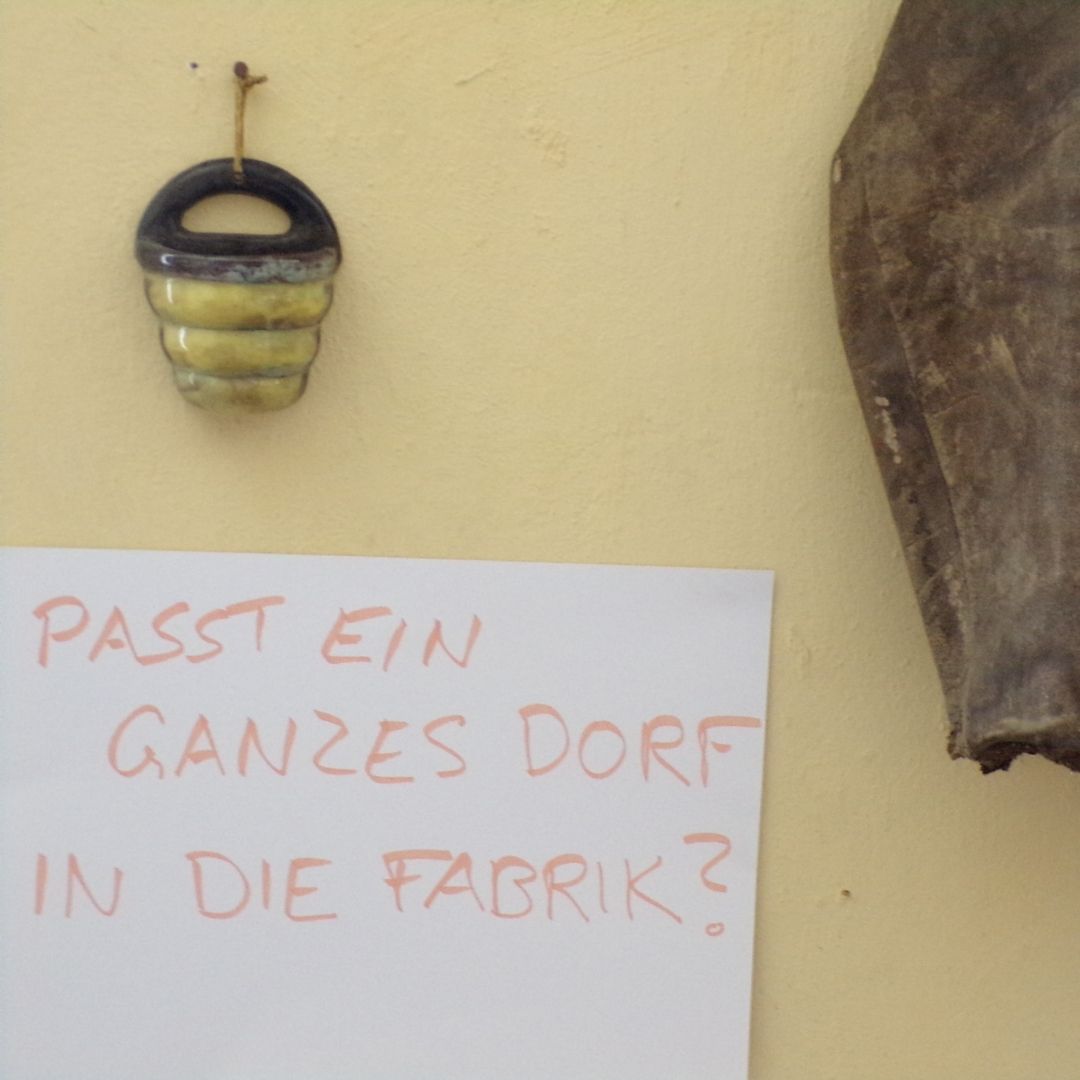 PASST EIN
GANZES DORF
IN DIE FABRIK?